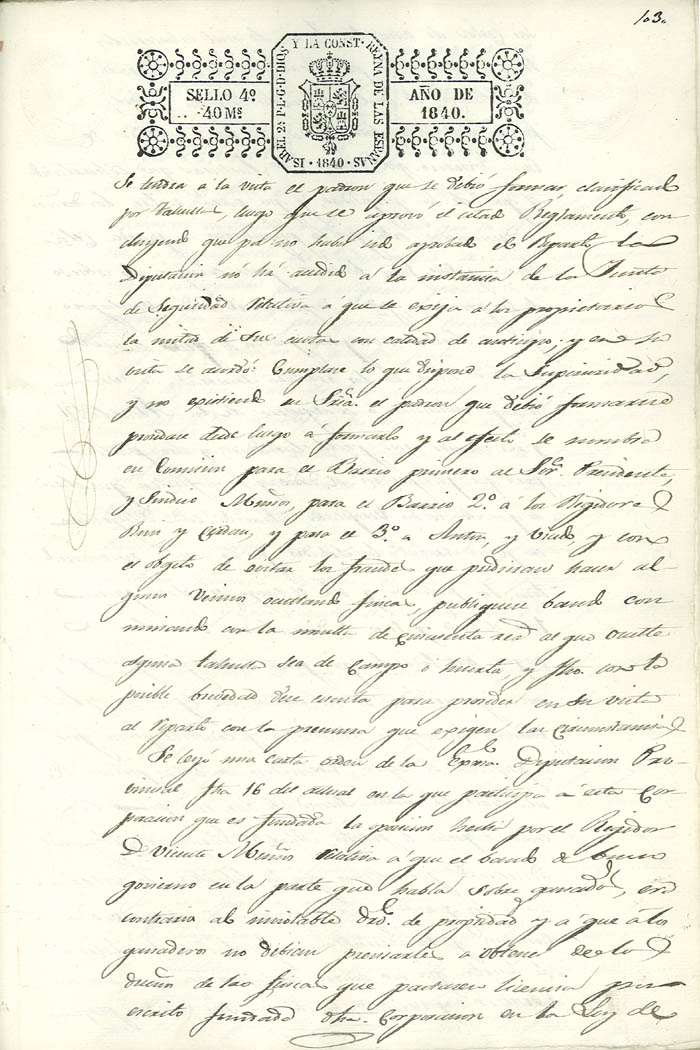 103.
ISABEL 2ª P. L. G. D. DIOS Y LA CONST. REYNA DE LAS ESPAÑAS
· 1840 ·
SELLO 4º
40 Mˢ
AÑO DE
1840.
Se tendra á la vista el padron que se debió formar, clasificado
por tahullas, luego que se aprovó el citado Reglamento, con
cluyendo que por no haber sido aprobado el Reparto, la
Diputacion nó há accedido á la instancia de la Junta
de Seguridad relativa á que se exija á los propietarios
la mitad de sus cuotas con calidad de anticipo; y en su
vista se acordó: Cumplase lo que dispone la Superioridad,
y no existiendo en Sria. el padron que debió formarse
procedase desde luego á formarlo y al efecto se nombra
en Comision para el Barrio primero al Sor. Presidente,
y Sindico Muños, para el Barrio 2º. á los Regidores
y para el 3º. a Anton, y y con
el objeto de evitar los fraudes que pudieran hacer al-
gunos Vecinos ocultando fincas, publiquese bando con
minando con la multa de cincuenta reas. al que oculte
alguna tahulla sea de Campo ó huerta, y fho. con la
posible brevedad dese cuenta para proceder en su vista
al Reparto con la premura que exigen las circunstancias
Se leyó una carta orden de la Exma. Diputacion Pro-
vincial fha 16 del actual en la que participa á esta Cor-
poracion que es fundada la oposicion hecha por el Regidor
D. Vicente Muños relativa á que el bando de buen
govierno en la parte que habla sobre ganados, era
contraria al inviolable dro. de propiedad y a que á los
ganaderos no debian precisarles a obtener de los
dueños de las fincas que pastasen licencia por
escrito fundado dha. Corporacion en la Ley de